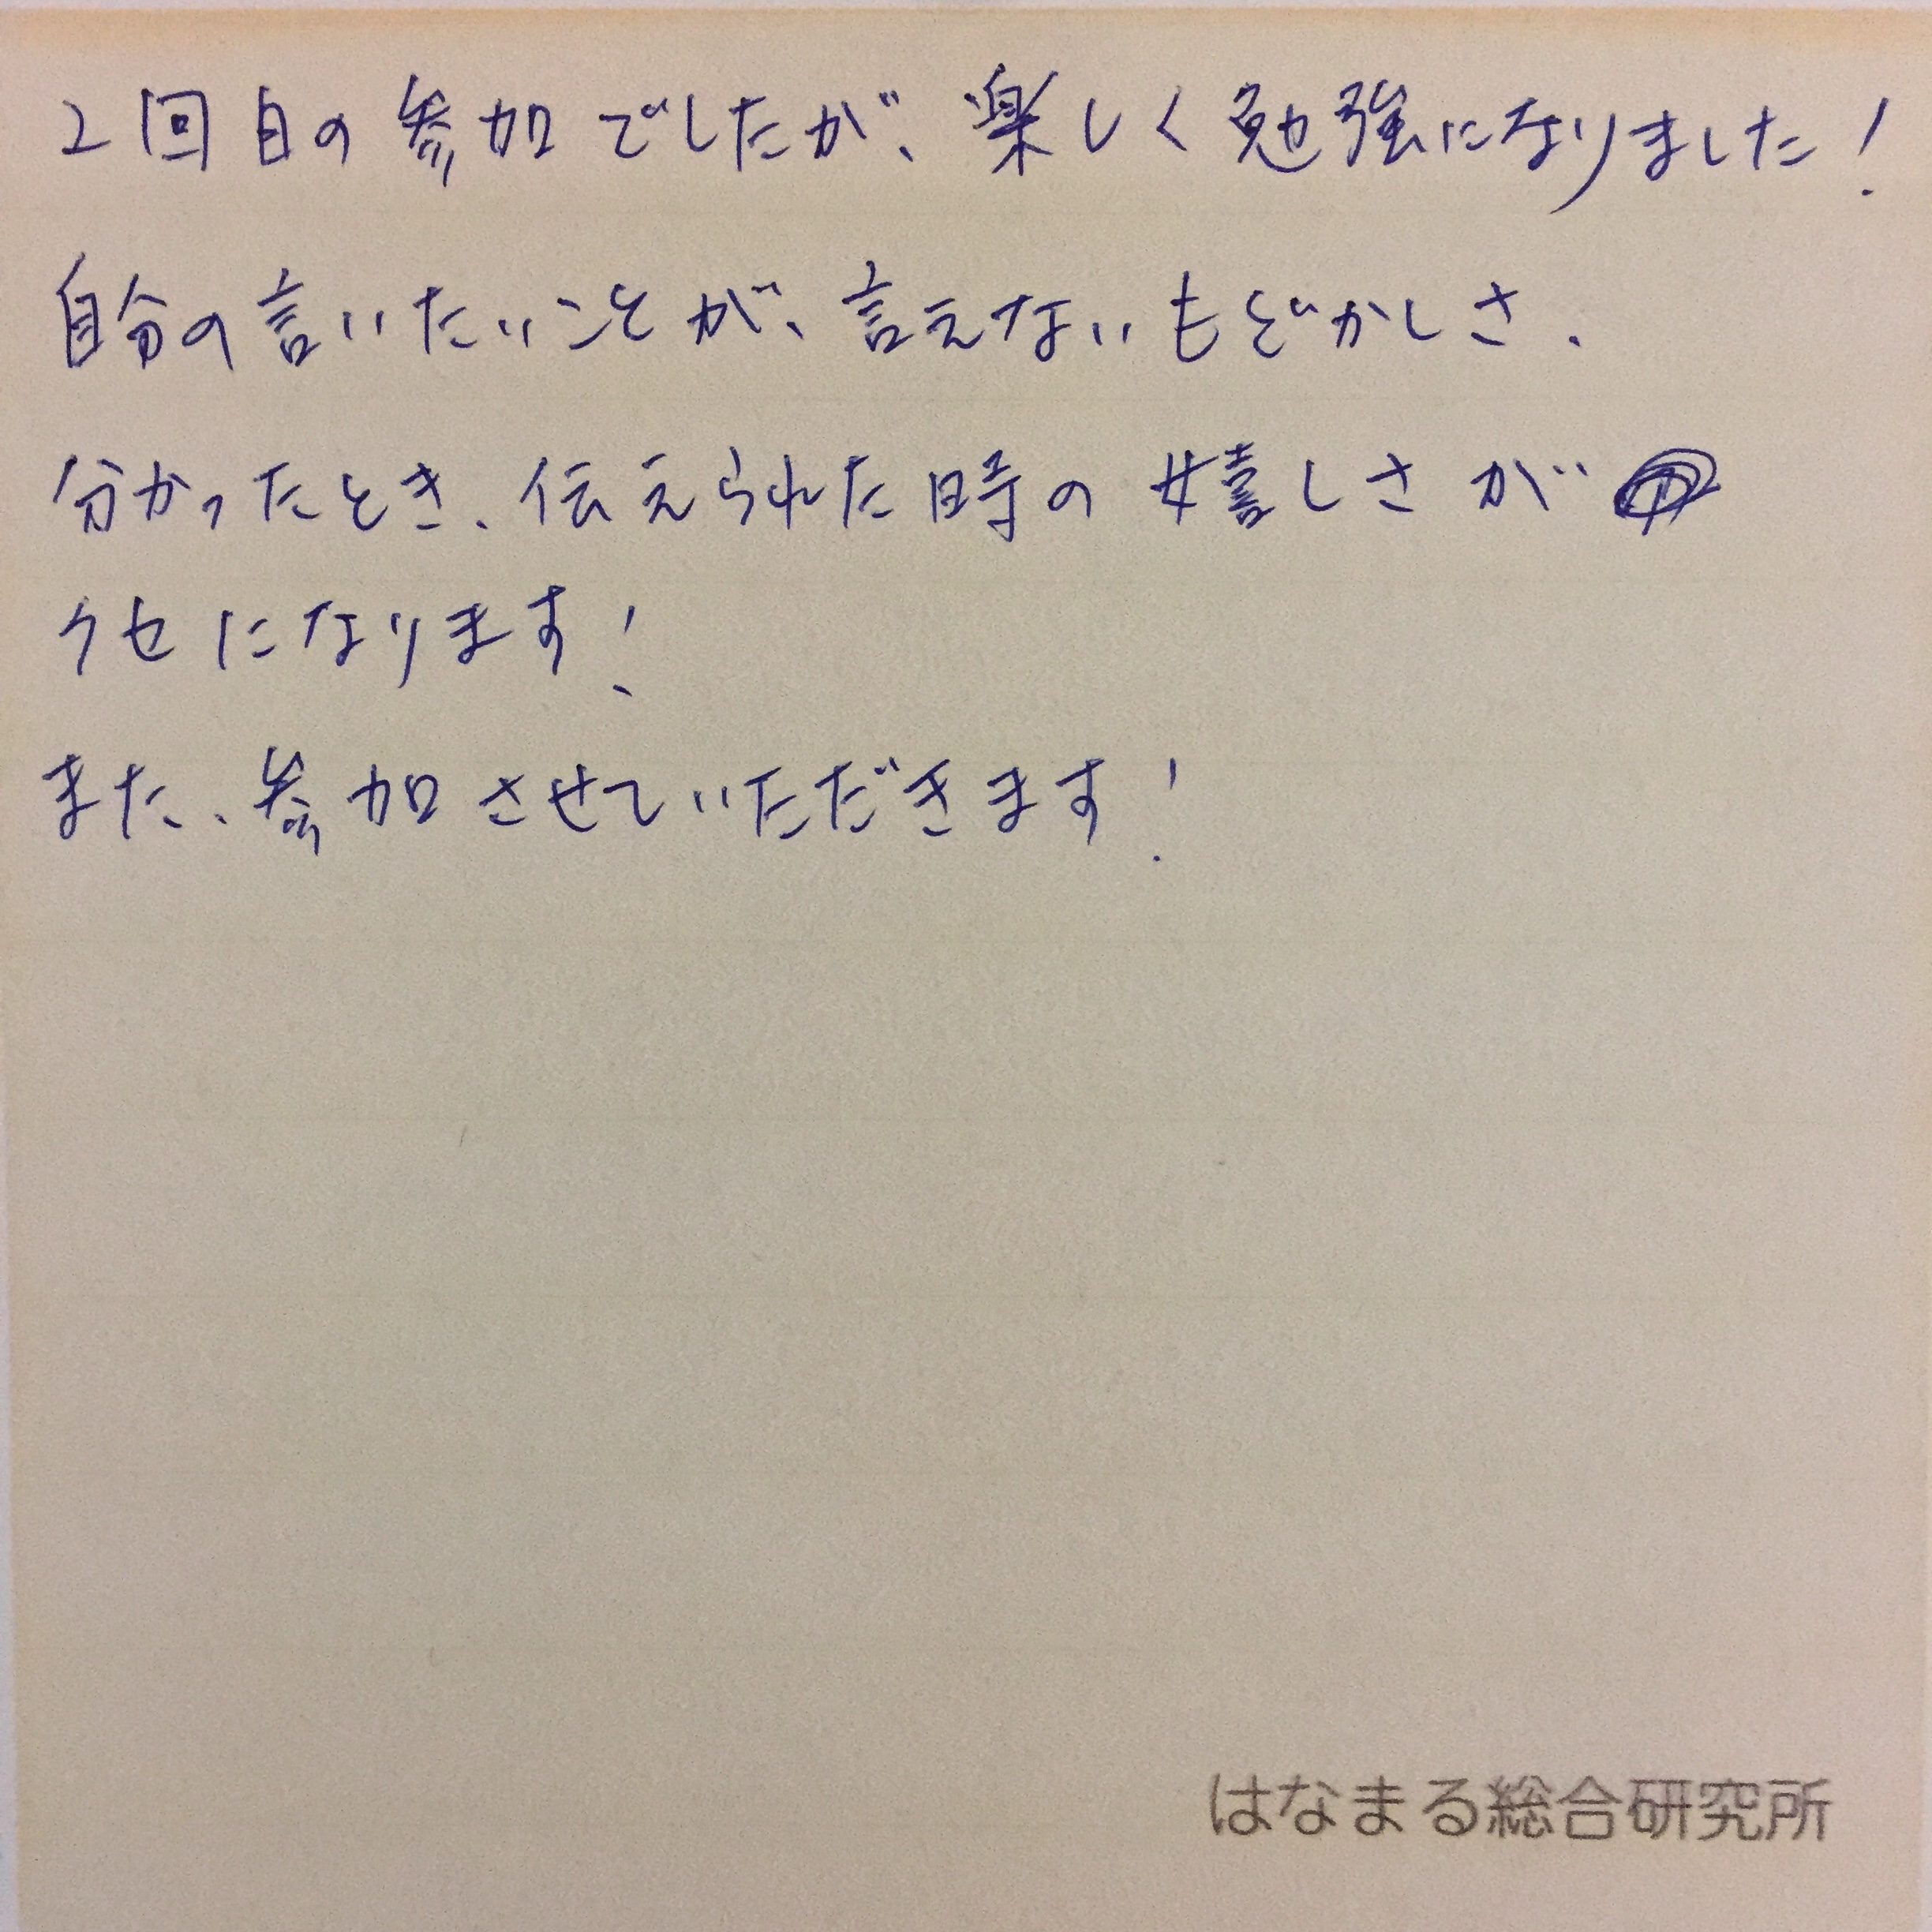 2回目の参加でしたが、楽しく勉強になりました!
自分の言いたいことが、言えないもどかしさ、
分かったとき、伝えられた時の嬉しさが
クセになります!
また、参加させていただきます!
はなまる総合研究所